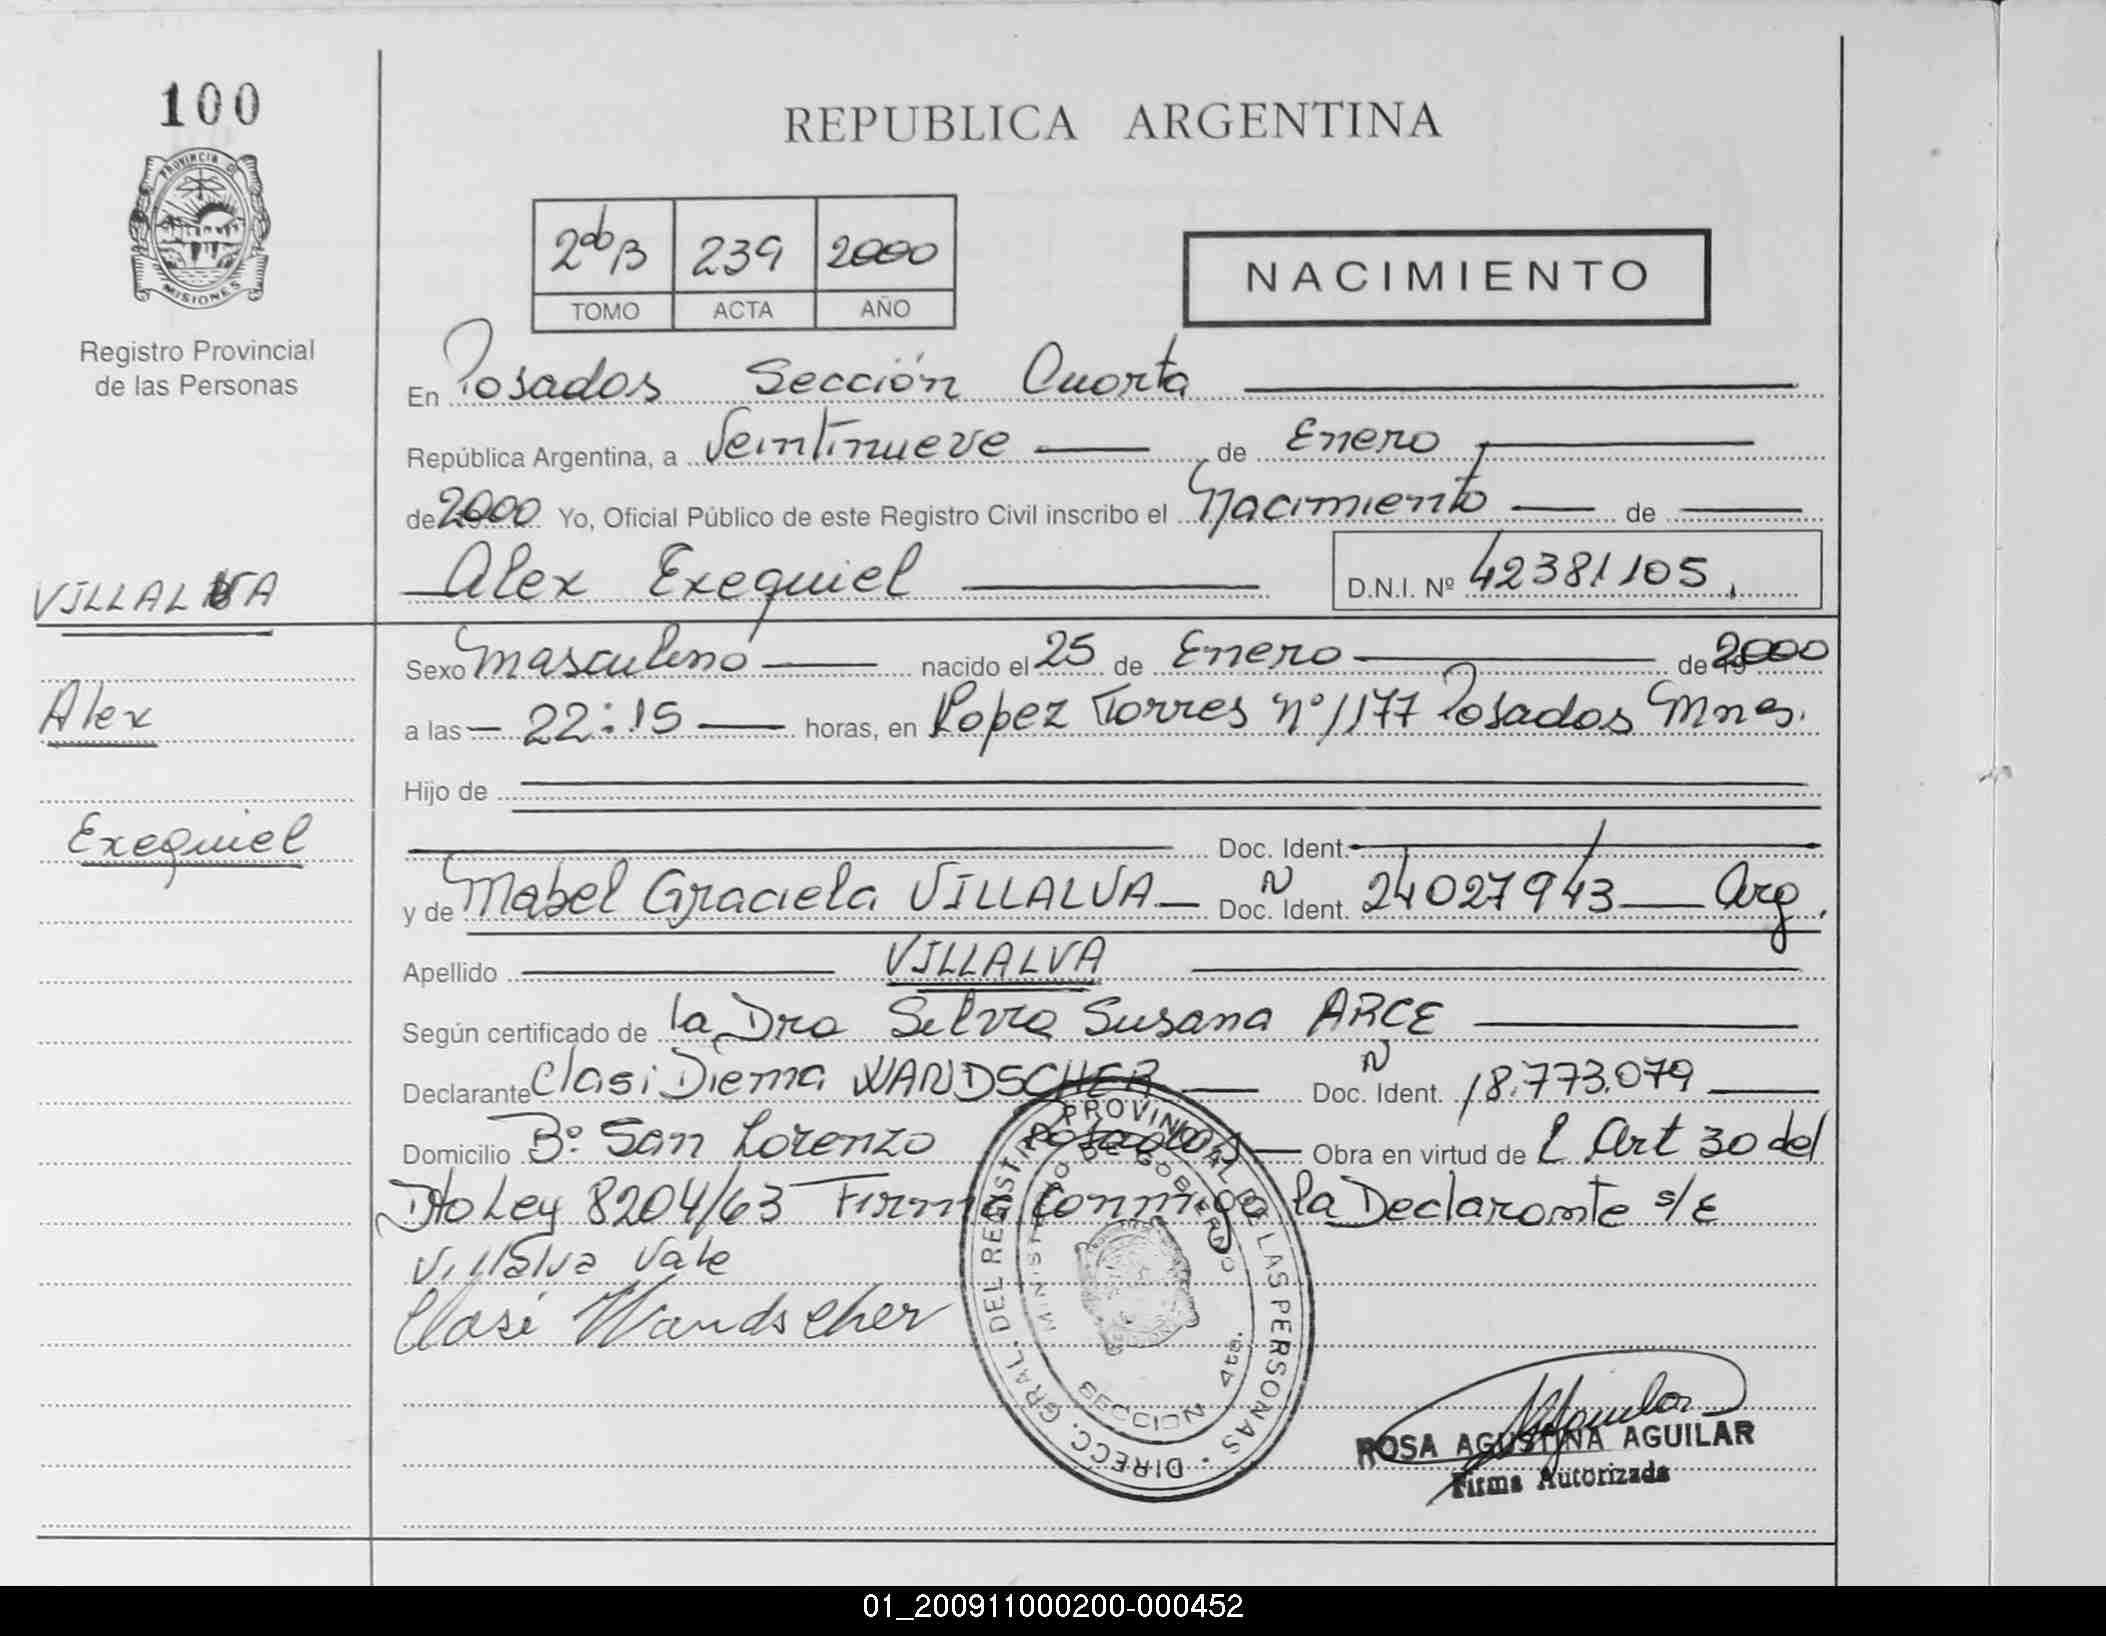 100
REPUBLICA ARGENTINA
PROVINCIA DE
MISIONES
Registro Provincial
de las Personas
239 2000
TOMO ACTA AÑO
NACIMIENTO
En Posadas Sección Cuarta
República Argentina, a Veintinueve de Enero
de 2000 Yo, Oficial Público de este Registro Civil inscribo el Nacimiento de
VILLALVA
Alex Exequiel D.N.I. Nº 42381105
Sexo Masculino nacido el 25 de Enero de 2000
Alex
a las 22:15 horas, en Lopez Torres nº 1177 Posadas Mnes.
Hijo de
Exequiel
Doc. Ident.
y de Mabel Graciela VILLALVA Doc. Ident. N 24027943 Arg.
Apellido VILLALVA
Según certificado de la Dra Silvia Susana ARCE
Declarante Clasi Diema WANDSCHER Doc. Ident. N 18.773.079
Domicilio Bº San Lorenzo Posadas Obra en virtud de l Art 30 del
Dto Ley 8204/63 Firma conmigo la Declarante s/E
Villalva Vale
Clasi Wandscher
DIRECC. GRAL. DEL REGISTRO PROVINCIAL DE LAS PERSONAS
MINISTERIO DE GOBIERNO
SECCION 4ta.
ROSA AGUSTINA AGUILAR
Firma Autorizada
01_200911000200-000452